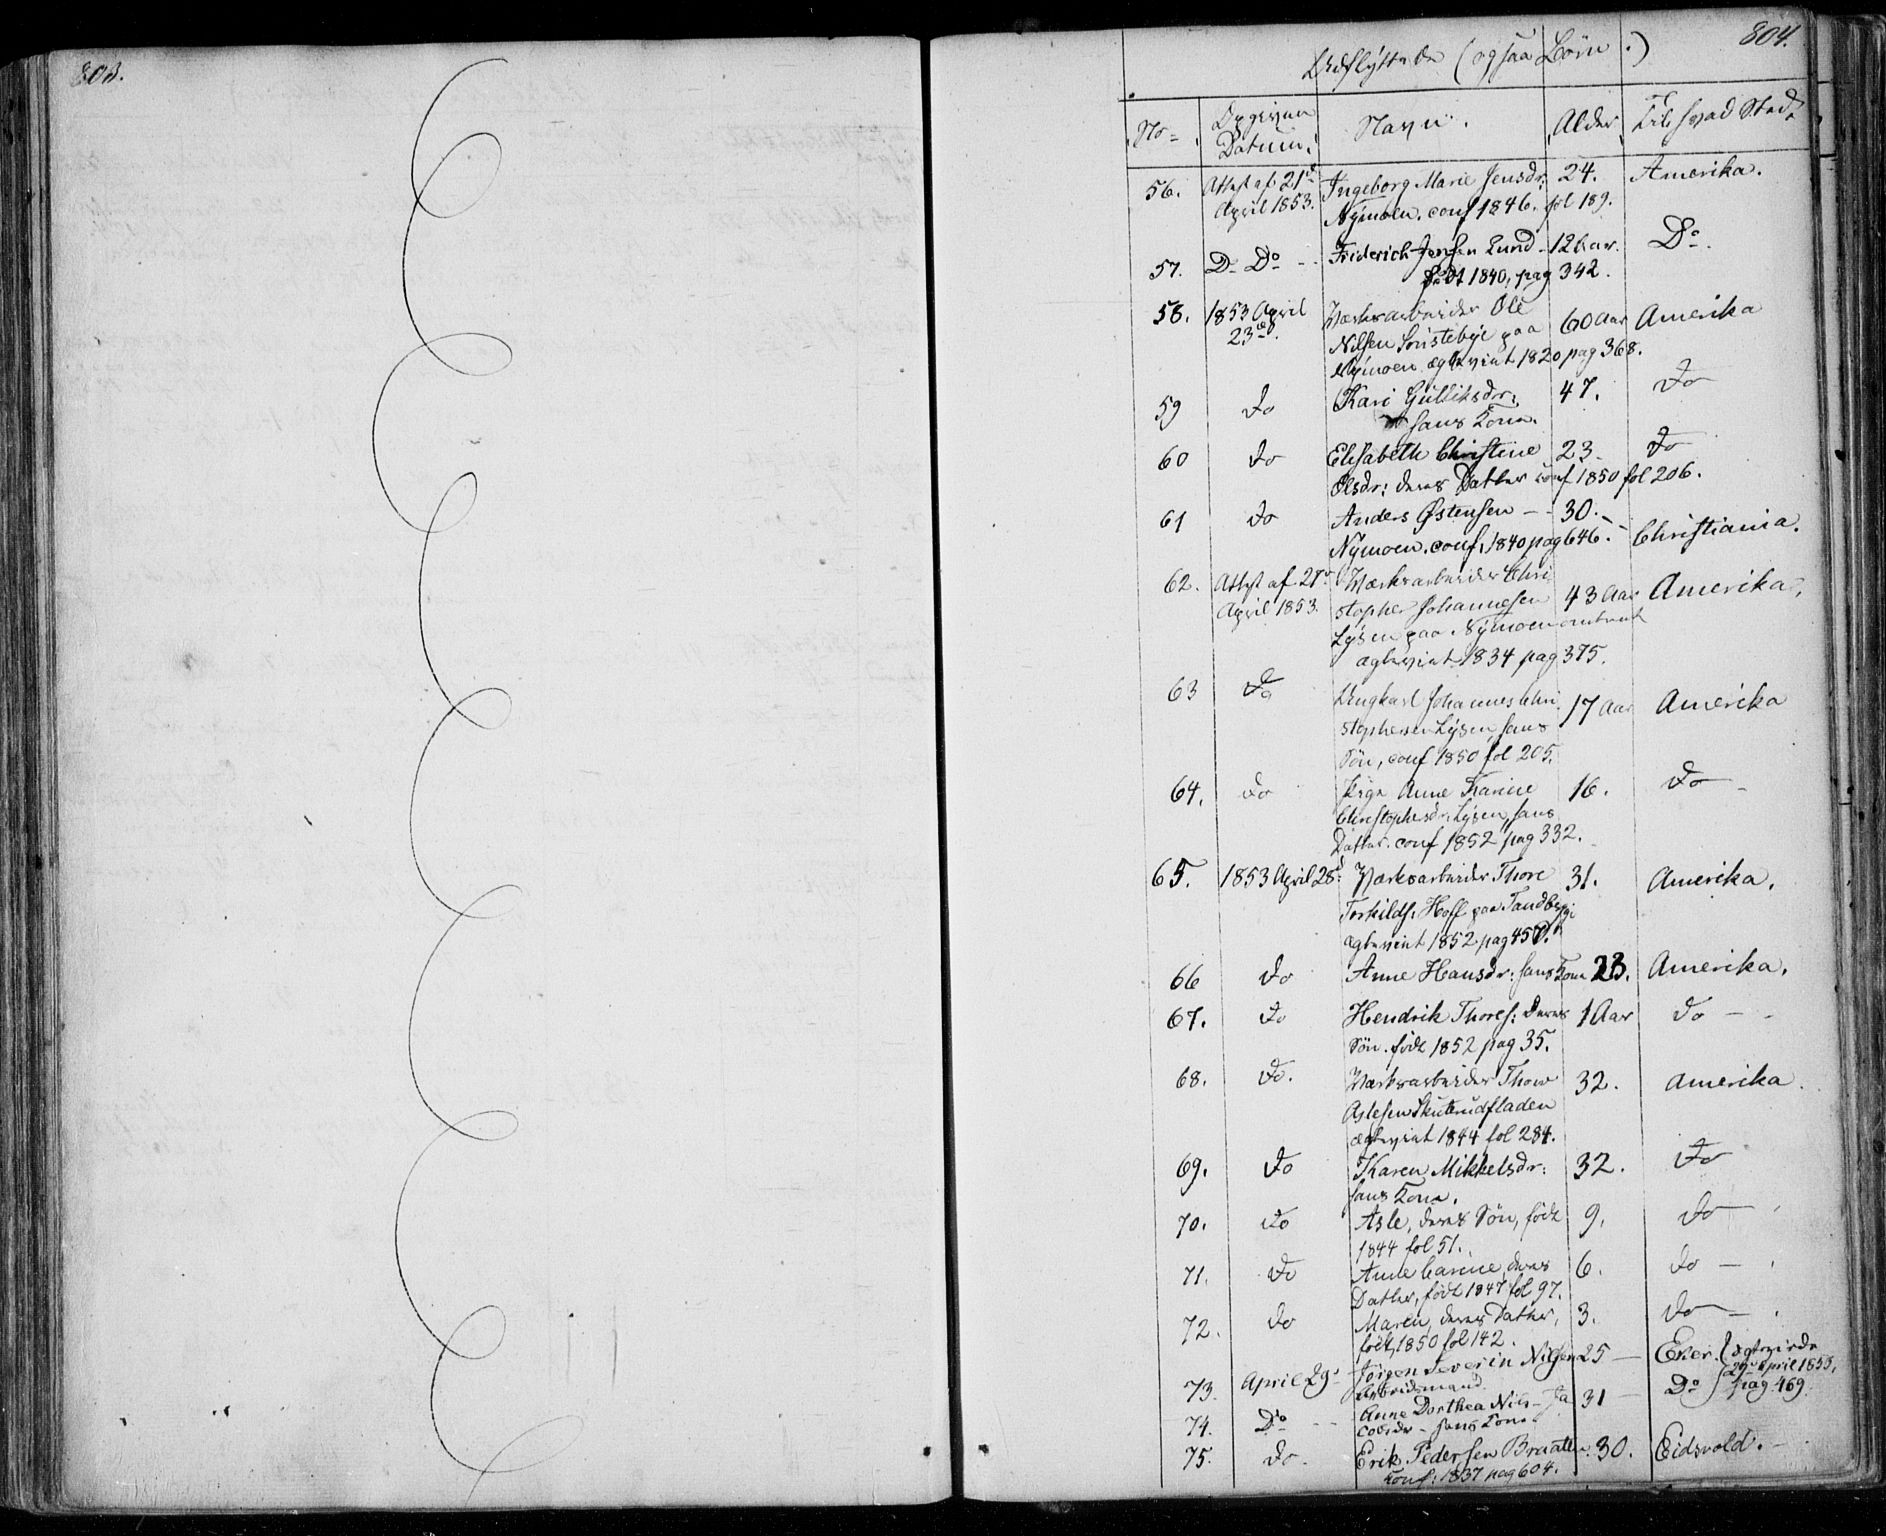 803.
804.
Udflyttede (ogsaa Børn.)
No Opgiven Navn. Alder Til hvad Sted.
Datum.
56. Attest af 21de Ingeborg Marie Jensdr: 24. Amerika.
April 1853. Nymoen. conf 1846. fol 189.
57. Do Do - - Friderich Jensen Lund - 12 Aar. Do.
født 1840, pag 342.
58. 1853 April Værksarbeider Ole 60 Aar Amerika
23de. Nilsen Sønstebye paa
Nymoen ægteviet 1820 pag 368.
59 do Kari Gulliksdr: 47. do
hans Kone.
60 do Elisabeth Christine 23. do
Olsdr: deres Datter conf 1850 fol 206.
61 do Anders Østensen - - 30. - - Christiania.
Nymoen. conf. 1840 pag 646.
62. Attest af 27de Værksarbeider Chri
April 1853. stopher Johannesen 43 Aar Amerika,
Lysen paa Nymoen
ægteviet 1834 pag 375.
63 do Ungkarl Johannes Chri 17 Aar Amerika
stophersen Lysen, hans
Søn, conf 1850 fol 205.
64. do Pige Anne Karine 16. do -
Christophersdr: Lysen, hans
Datter. conf 1852 pag 332.
65. 1853 April 28d: Værksarbeider Thore 31. Amerika.
Torkilds: Hoff paa Tandberg
ægteviet 1852 pag 457.
66 do Anne Hansdr: hans Kone 23. Amerika.
67. do Hendrik Thores: deres 1 Aar do - -
Søn. født 1852 pag 35.
68. do. Værksarbeider Thore 32. Amerika.
Aslesen Skuterudfladen
ægteviet 1844 fol 284.
69. do Karen Mikkelsdr: 32. do
hans Kone.
70. do Asle, deres Søn, født 9. do
1844 fol 51.
71. do Anne Carine, deres 6. do - .
Datter, født 1847 fol 97.
72. do Maren, deres Datter, 3. do - .
født, 1850 fol 142.
73. April 29d Jørgen Severin Nilsen 25 - Eker. {ægteviede
Arbeidsmand. 29de April 1853,
74. Do - - Anne Dorthea Niis - Ja 31 - Do pag. 469
cobsdr - hans Kone.
75. do. Erik Pedersen Braaten 30. Eidsvold. -
Conf: 1837 pag 604.